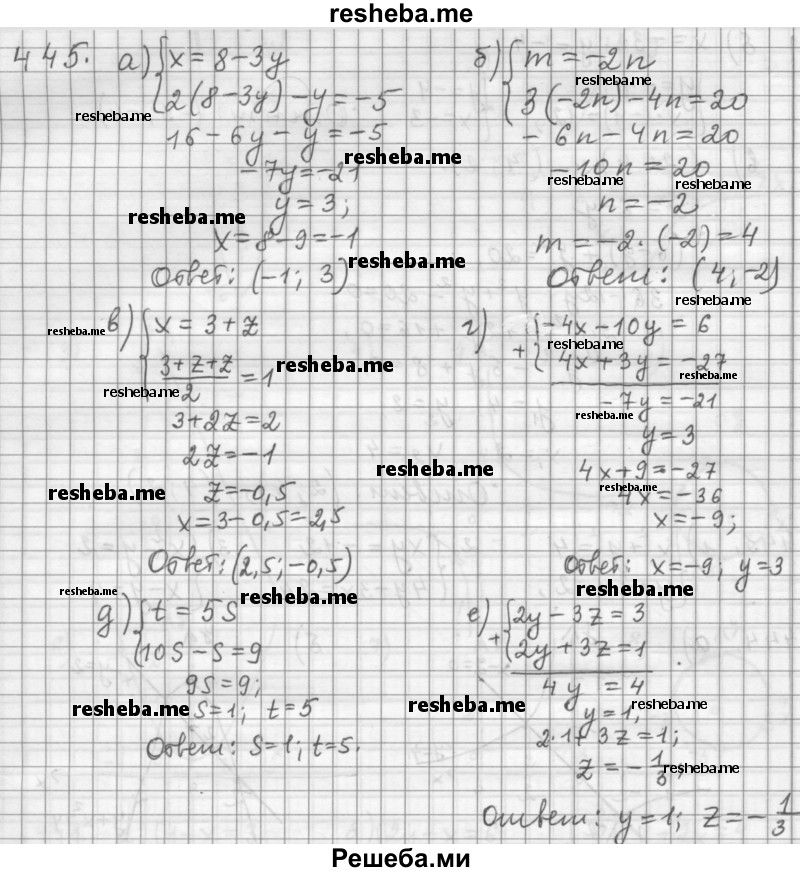 resheba.me
445. а) { x = 8 - 3y
{ 2(8 - 3y) - y = -5
resheba.me
16 - 6y - y = -5
resheba.me
-7y = -21
y = 3;
resheba.me
x = 8 - 9 = -1
resheba.me
Ответ: (-1; 3)
б) { m = -2n
resheba.me
{ 3(-2n) - 4n = 20
- 6n - 4n = 20
-10n = 20
resheba.me resheba.me
n = -2
m = -2 · (-2) = 4
Ответ: (4; -2)
resheba.me
в) { x = 3 + z
resheba.me
{ (3+z+z)/2 = 1
resheba.me
resheba.me
3 + 2z = 2
2z = -1
resheba.me
z = -0,5
resheba.me
x = 3 - 0,5 = 2,5
Ответ: (2,5; -0,5)
г) { -4x - 10y = 6
resheba.me
+ { 4x + 3y = -27
resheba.me
-7y = -21
resheba.me
y = 3
4x + 9 = -27
resheba.me
4x = -36
x = -9;
Ответ: x = -9; y = 3
resheba.me
resheba.me
д) { t = 5s
resheba.me
{ 10s - s = 9
9s = 9;
resheba.me
s = 1; t = 5
Ответ: s = 1; t = 5.
е) { 2y - 3z = 3
+ { 2y + 3z = 1
4y = 4
resheba.me
y = 1, resheba.me
2·1 + 3z = 1;
z = -1/3;
resheba.me
Ответ: y = 1; z = -1/3
Решеба.ми